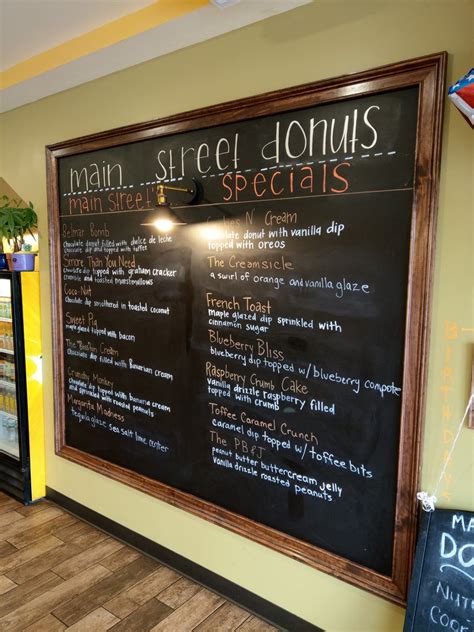 main street donuts
main street specials
Belmar Bomb
chocolate donut filled with dulce de leche
chocolate dip and topped with toffee
S'more Than You Need
chocolate dip topped with graham cracker
and toasted marshmallows
Coco-Nut
chocolate dip smothered in toasted coconut
Sweet Pig
maple glaze topped with bacon
The "Boston" Cream
Chocolate dip filled with Bavarian cream
Crunchy Monkey
Chocolate dip filled with banana cream
and sprinkled with roasted peanuts
Margarita Madness
tequila glaze sea salt lime center
N' Cream
chocolate donut with vanilla dip
topped with oreos
The Creamsicle
a swirl of orange and vanilla glaze
French Toast
maple glazed dip sprinkled with
cinnamon sugar
Blueberry Bliss
blueberry dip topped w/ blueberry compote
Raspberry Crumb Cake
vanilla drizzle raspberry filled
topped with crumb
Toffee Caramel Crunch
caramel dip topped w/ toffee bits
The PB&J
peanut butter buttercream jelly
vanilla drizzle roasted peanuts
Birthday
MA
DO
NUTS
COO